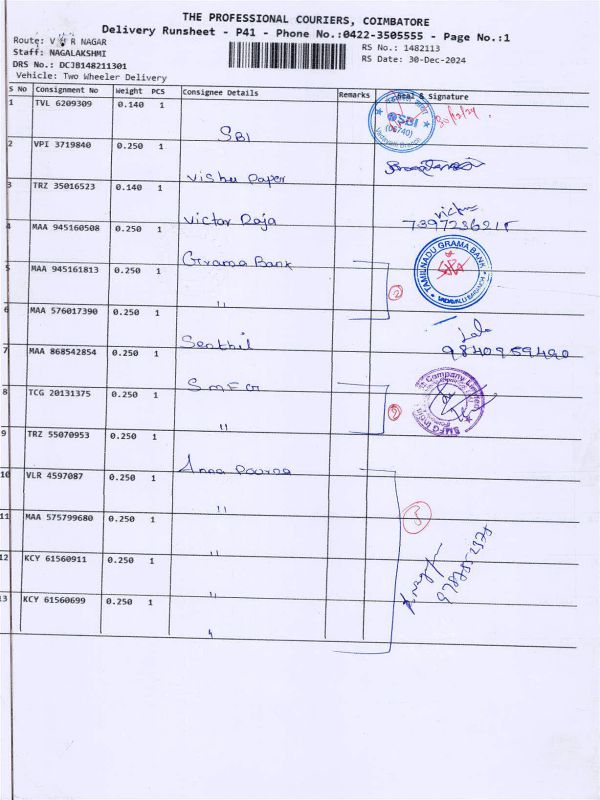 THE PROFESSIONAL COURIERS, COIMBATORE
Delivery Runsheet - P41 - Phone No.:0422-3505555 - Page No.:1
Route: V R NAGAR
Staff: NAGALAKSHMI
DRS No.: DCJB148211301
Vehicle: Two Wheeler Delivery
RS No.: 1482113
RS Date: 30-Dec-2024
S No Consignment No Weight PCS Consignee Details Remarks & signature
1 TVL 6209309 0.140 1 SBI
SBI (06740) 30/12/24
2 VPI 3719840 0.250 1 Vishu Paper
3 TRZ 35016523 0.140 1 Victor Raja
7397236215
4 MAA 945160508 0.250 1 Grama Bank
TAMILNADU GRAMA BANK
5 MAA 945161813 0.250 1 "
2
6 MAA 576017390 0.250 1 Senthil
9840959490
7 MAA 868542854 0.250 1 SMFG
8 TCG 20131375 0.250 1 "
2
SMFG India Company Limited
9 TRZ 55070953 0.250 1 Anna Poorna
10 VLR 4597087 0.250 1 "
11 MAA 575799680 0.250 1 "
5
12 KCY 61560911 0.250 1 "
13 KCY 61560699 0.250 1 "